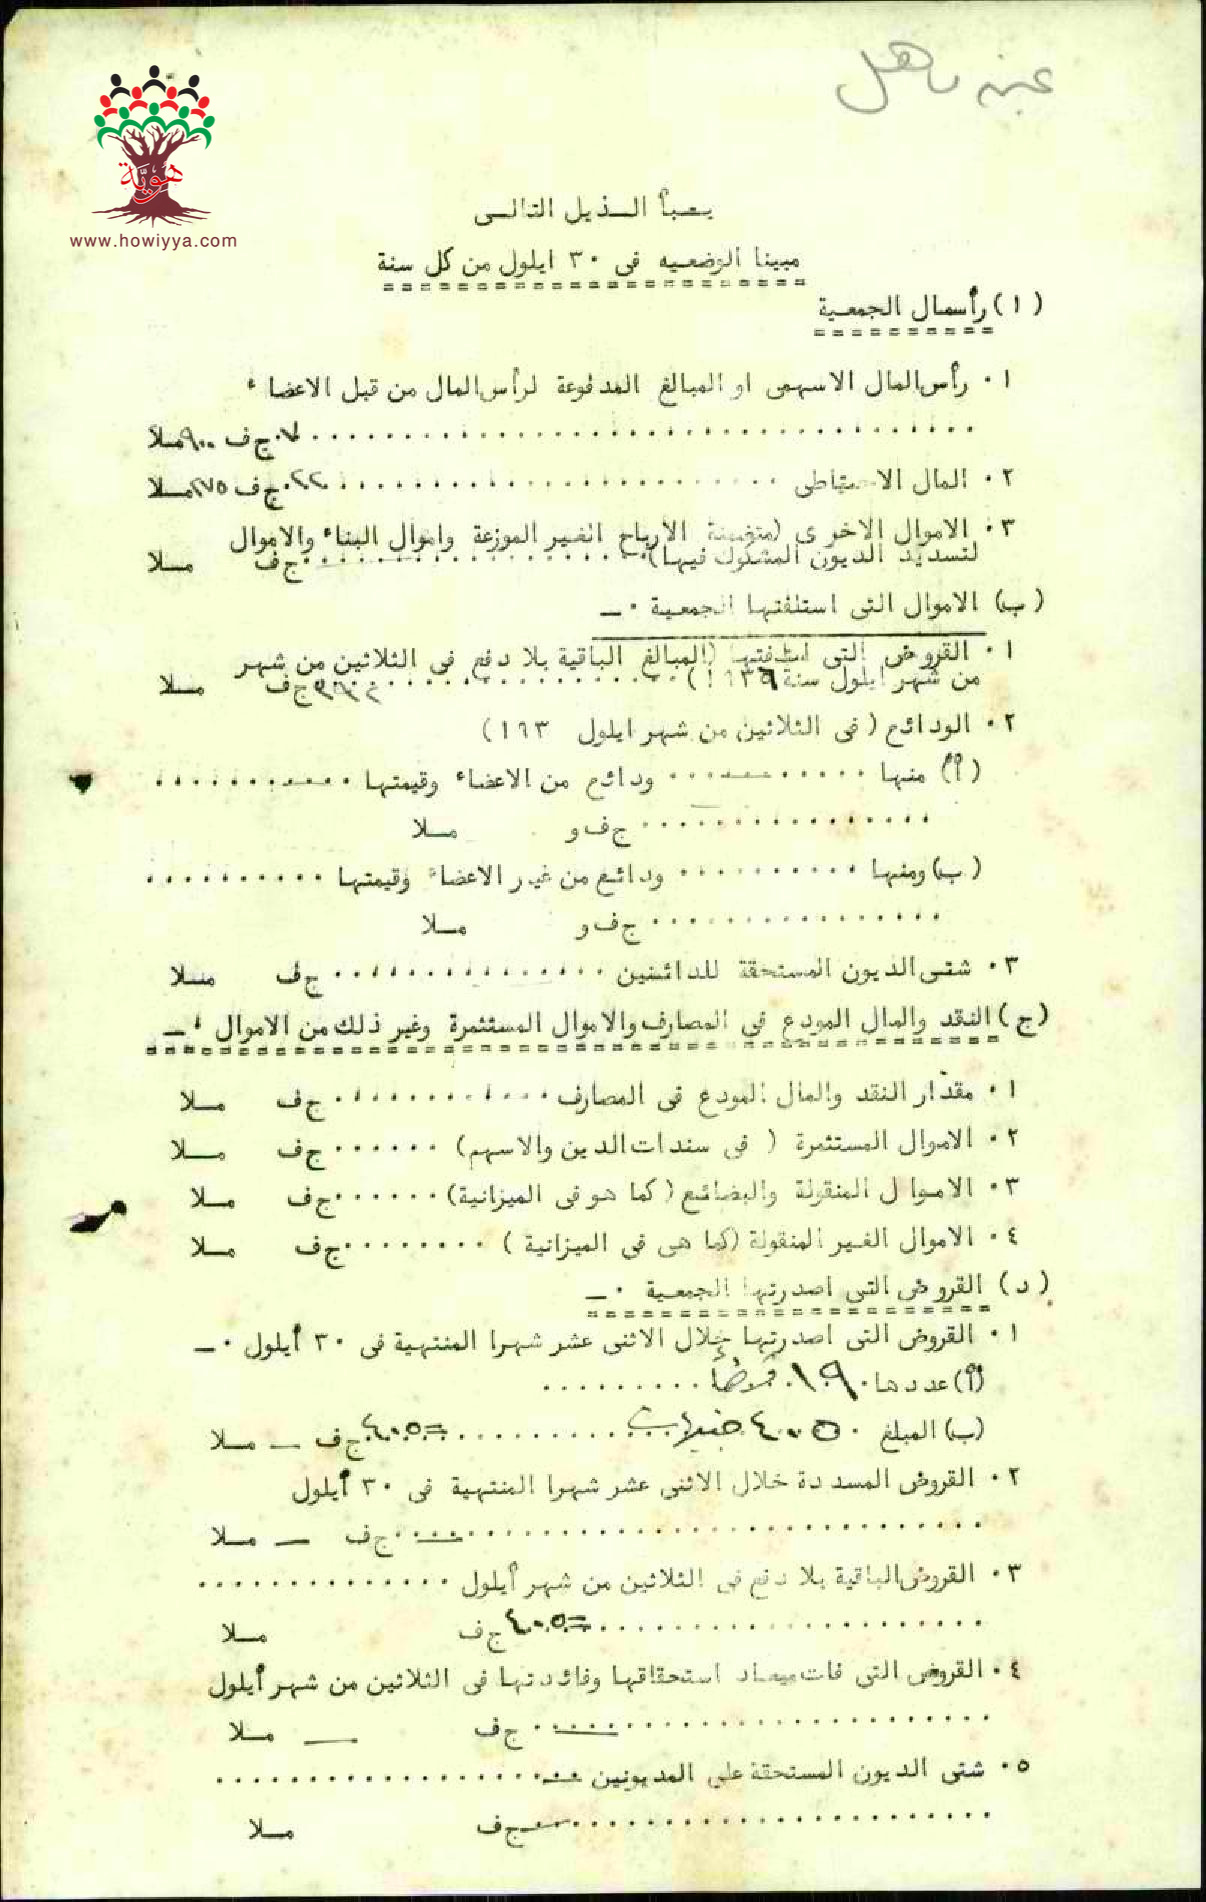 عين ماهل
هوية
www.howiyya.com
يعبأ الذيل التالي
مبينا الوضعيه فى ٣٠ ايلول من كل سنة
(ا) رأسمال الجمعية
٠١ رأس المال الاسهمى او المبالغ المدفوعة لرأس المال من قبل الاعضاء
ج ف ٩٠٠ ملا
٠٢ المال الاحتياطى ٢٢ ج ف ٢٧٥ ملا
٠٣ الاموال الاخرى (متضمنة الارباح الغير الموزعة واموال البناء والاموال
لتسديد الديون المشكوك فيها) ج ف ملا
(ب) الاموال التى استلفتها الجمعية ٠ــ
٠١ القروض التى استلفتها (المبالغ الباقية بلا دفع فى الثلاثين من شهر
من شهر ايلول سنة ١٩٣٦) ج ف ملا
٠٢ الودائع (فى الثلاثين من شهر ايلول ١٩٣)
(أ) منها ........... ودائع من الاعضاء وقيمتها ...........
................ ج ف و ملا
(ب) ومنها .......... ودائع من غير الاعضاء وقيمتها ..........
................ ج ف و ملا
٠٣ شتى الديون المستحقة للدائنين ............... ج ف ملا
(ج) النقد والمال المودع فى المصارف والاموال المستثمرة وغير ذلك من الاموال ٠ــ
٠١ مقدار النقد والمال المودع فى المصارف ............ ج ف ملا
٠٢ الاموال المستثمرة (فى سندات الدين والاسهم) ...... ج ف ملا
٠٣ الاموال المنقولة والبضائع (كما هو فى الميزانية) ...... ج ف ملا
٠٤ الاموال الغير المنقولة (كما هى فى الميزانية) ........ ج ف ملا
(د) القروض التى اصدرتها الجمعية ٠ــ
٠١ القروض التى اصدرتها خلال الاثنى عشر شهرا المنتهية فى ٣٠ أيلول ٠ــ
(أ) عددها ١٩٠ قرضاً .........
(ب) المبلغ ٤٠٠٥ جنيهات ........... ٤٠٠٥= ج ف ــ ملا
٠٢ القروض المسددة خلال الاثنى عشر شهرا المنتهية فى ٣٠ أيلول
................................ ج ف ــ ملا
٠٣ القروض الباقية بلا دفع فى الثلاثين من شهر أيلول ..............
...................... ٤٠٠٥= ج ف ملا
٠٤ القروض التى فات ميعاد استحقاقها وفائدتها فى الثلاثين من شهر أيلول
......................... ج ف ــ ملا
٠٥ شتى الديون المستحقة على المديونين ....................
........................ ج ف ملا